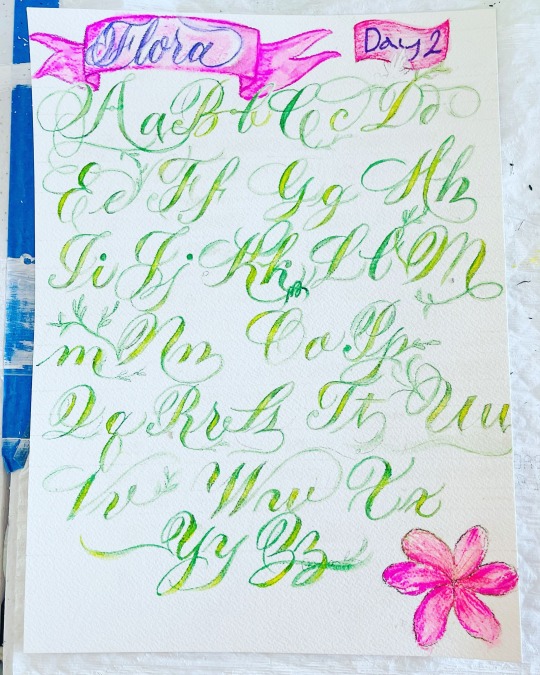 Flora Day 2
A a B b C c D d
E e F f G g H h
I i J j K k L l M
m N n O o P p
Q q R r S s T t U u
V v W w X x
Y y Z z